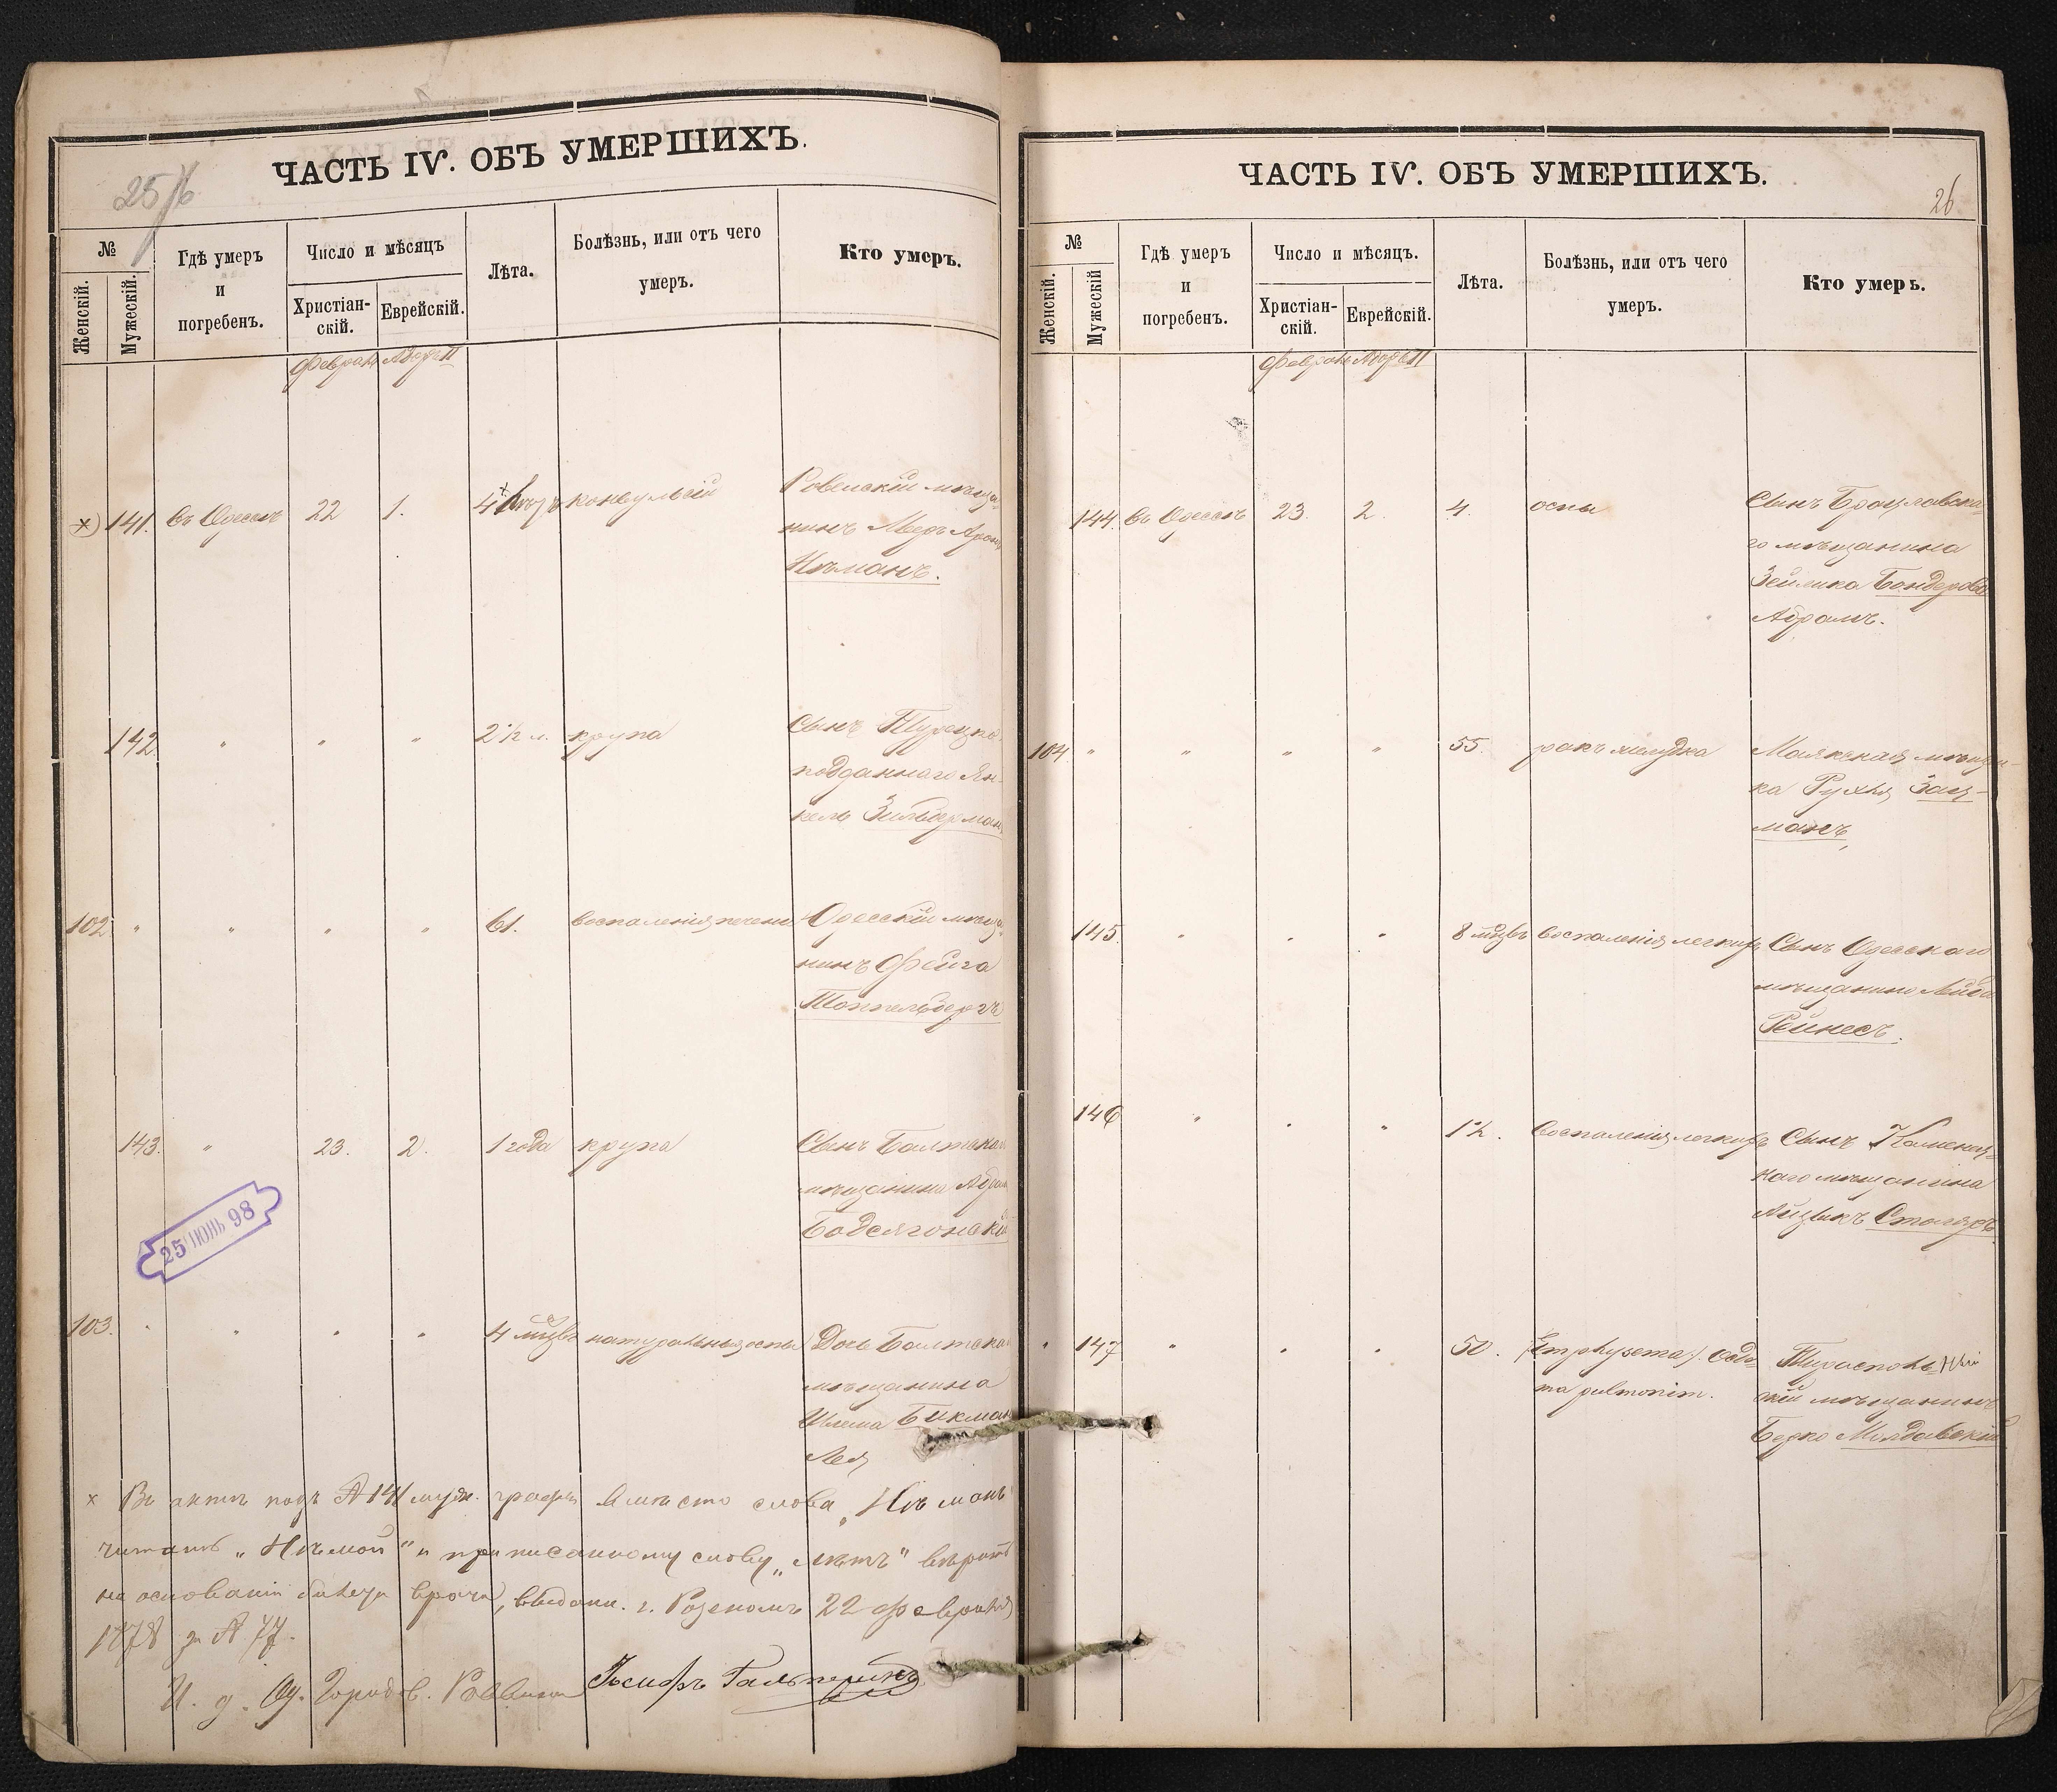 ЧАСТЬ IV. ОБЪ УМЕРШИХЪ.
25
№
Женскій.
Мужескій.
Гдѣ умеръ
и
погребенъ.
Число и мѣсяцъ
Христіан-
скій.
Еврейскій.
Лѣта.
Болѣзнь, или отъ чего
умеръ.
Кто умеръ.
Феврал Адаръ II
141. въ Одессѣ 22 1. 4 конвульсій Ровенскій мѣща-
нинъ Мееръ Арон
Нѣманъ.
142 " " " 2 1/2 л. крупа Сынъ Турецко-
подданнаго Ян-
кель Зильберман
102 " " " " 61. воспаленія печени Одесскій мѣща-
нинъ Фейга
Топпельбергъ
143. " 23. 2. 1 года крупа Сынъ Балтскаго
мѣщанина
103. " " " " 4 мцвъ натуральная оспы Дочь Балтскаго
мѣщанина
Шлема Бикман
Лея
25 ІЮНЬ 98
x Въ актѣ подъ № 141 муж. графы вмѣсто слова "Нѣманъ"
читать "Нѣмой" и приписанному слову "лѣтъ" вѣрить
на основаніи билета врача, выданн. г. Розеномъ 22 февраля
1878 за № 77.
И. д. Од. Городов. Раввина Іосифъ Гальперинъ
ЧАСТЬ IV. ОБЪ УМЕРШИХЪ.
26
№
Женскій.
Мужескій
Гдѣ умеръ
и
погребенъ.
Число и мѣсяцъ.
Христіан-
скій.
Еврейскій.
Лѣта.
Болѣзнь, или отъ чего
умеръ.
Кто умеръ.
Феврал Адаръ II
144. въ Одессѣ 23. 2. 4. оспы Сынъ Брацлавска-
го мѣщанина
Зейлика Бондерова
Абрамъ.
104 " " " " 55. ракъ желудка Маякская мѣщан-
ка Рухля Зац-
манъ
145. " " " 8 мцвъ воспаленія легкихъ Сынъ Одесскаго
мѣщанина Лейба
Рейнесъ.
146 " " " 1 1/2. воспаленія легкихъ Сынъ Каменец-
каго мѣщанина
Айзикъ Столяръ
" 147 " " " 50. Emphysema
pulmonim. Тирасполь-
скій мѣщанинъ
Берко Молдавскій